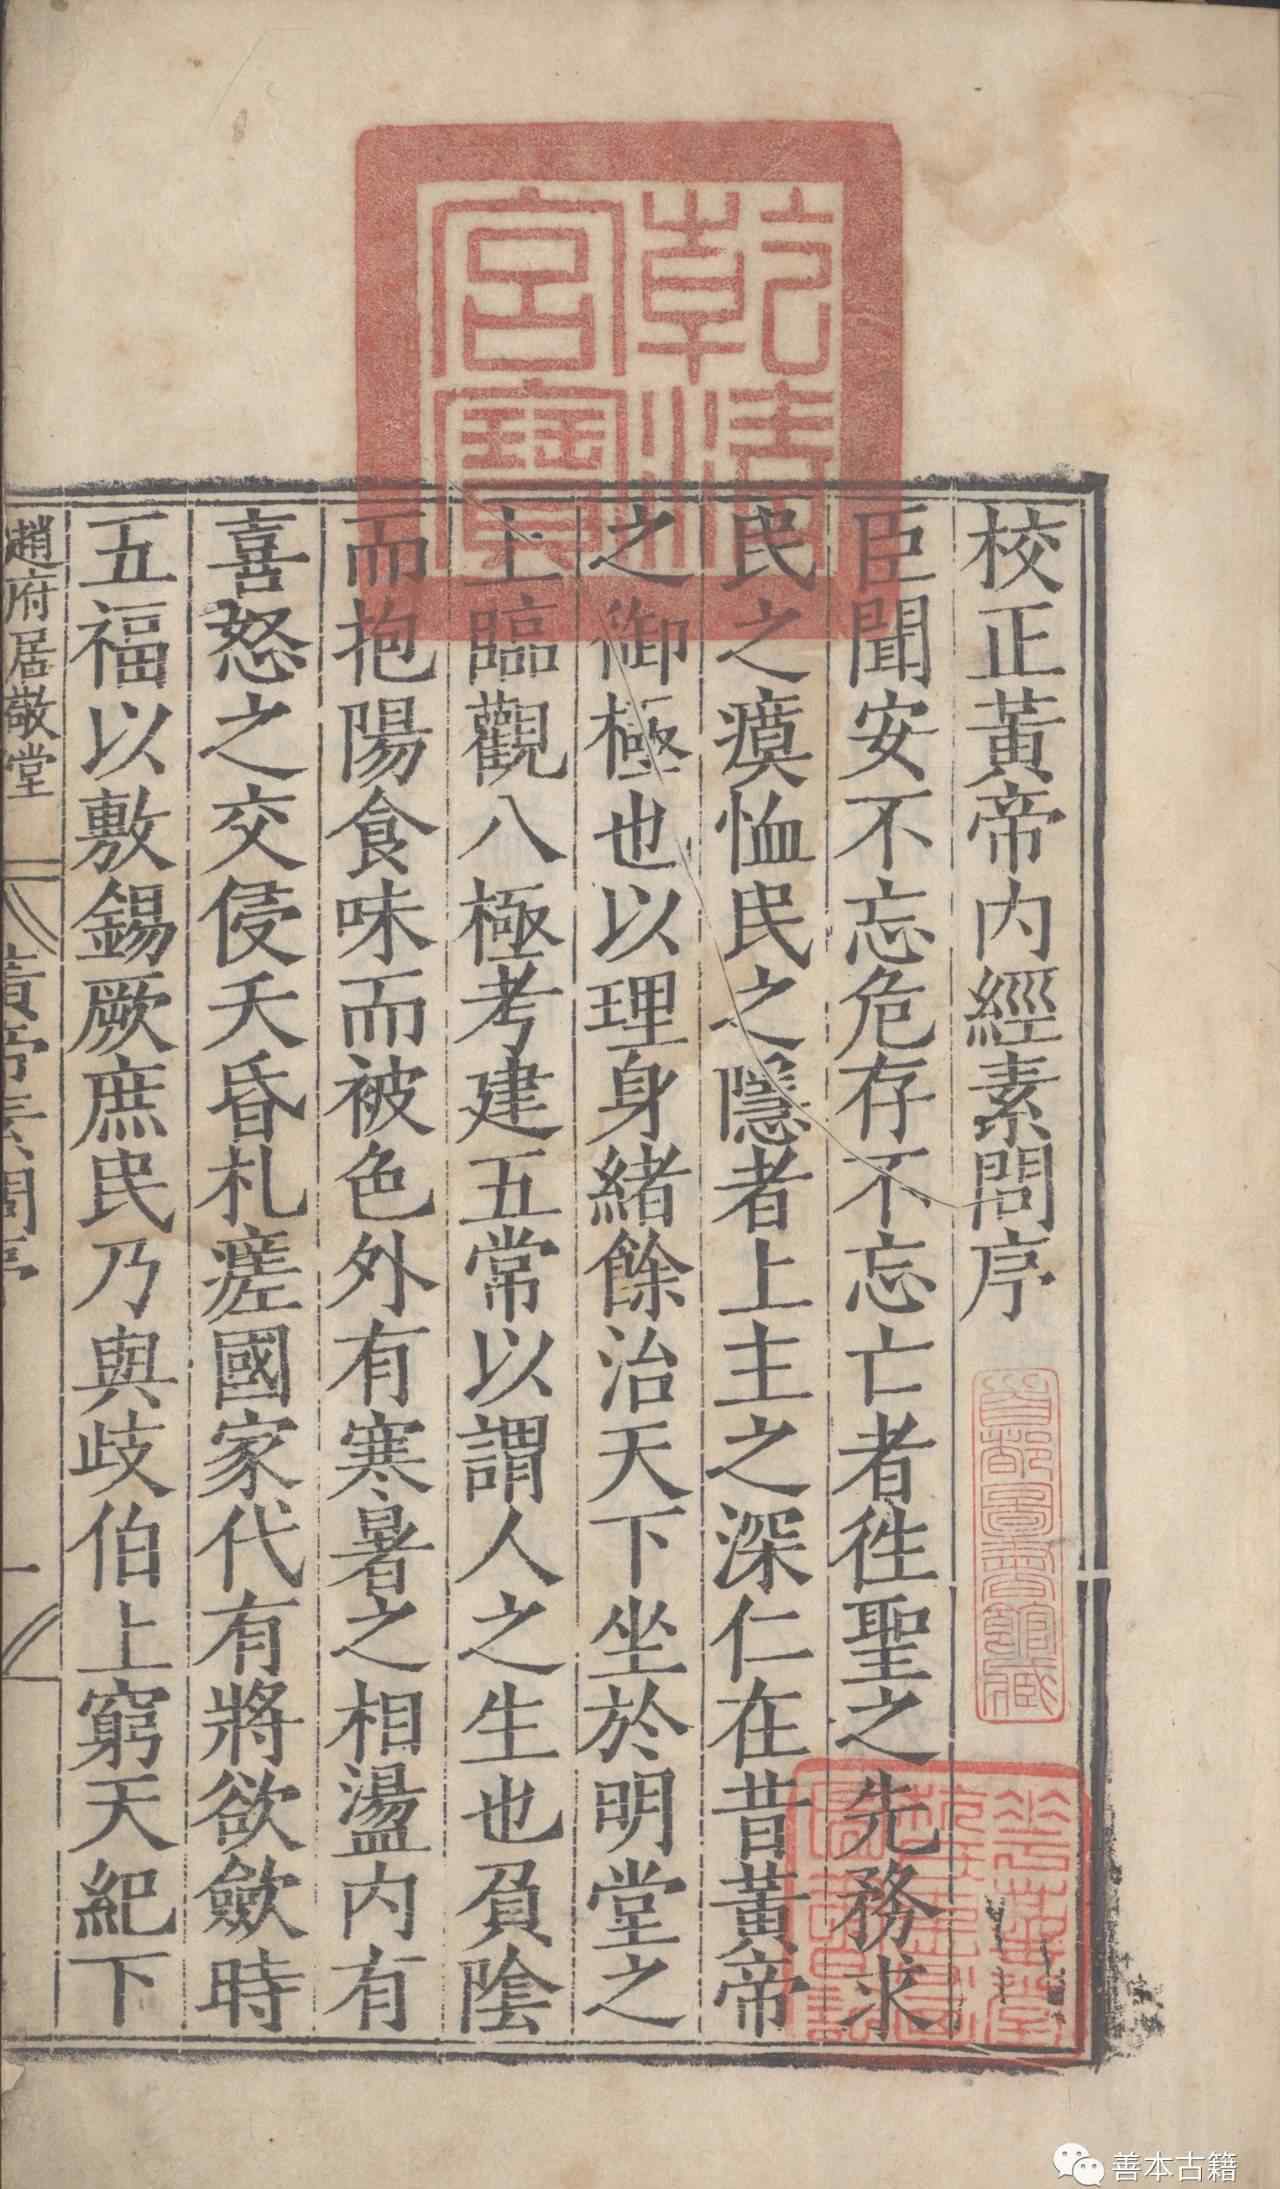 乾清
宮寶
校正黃帝內經素問序
臣聞安不忘危存不忘亡者徃聖之先務求
民之瘼恤民之隱者上主之深仁在昔黃帝
之御極也以理身緒餘治天下坐於明堂之
上臨觀八極考建五常以謂人之生也負陰
而抱陽食味而被色外有寒暑之相盪內有
喜怒之交侵夭昏札瘥國家代有將欲斂時
五福以敷錫厥庶民乃與歧伯上窮天紀下
趙府居敬堂
黃帝素問序
一
首都圖書館藏
善本古籍